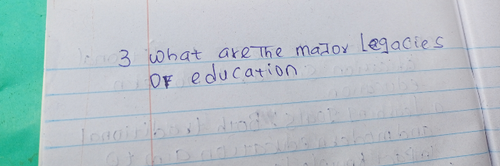 3 what are The major Legacies
OF education